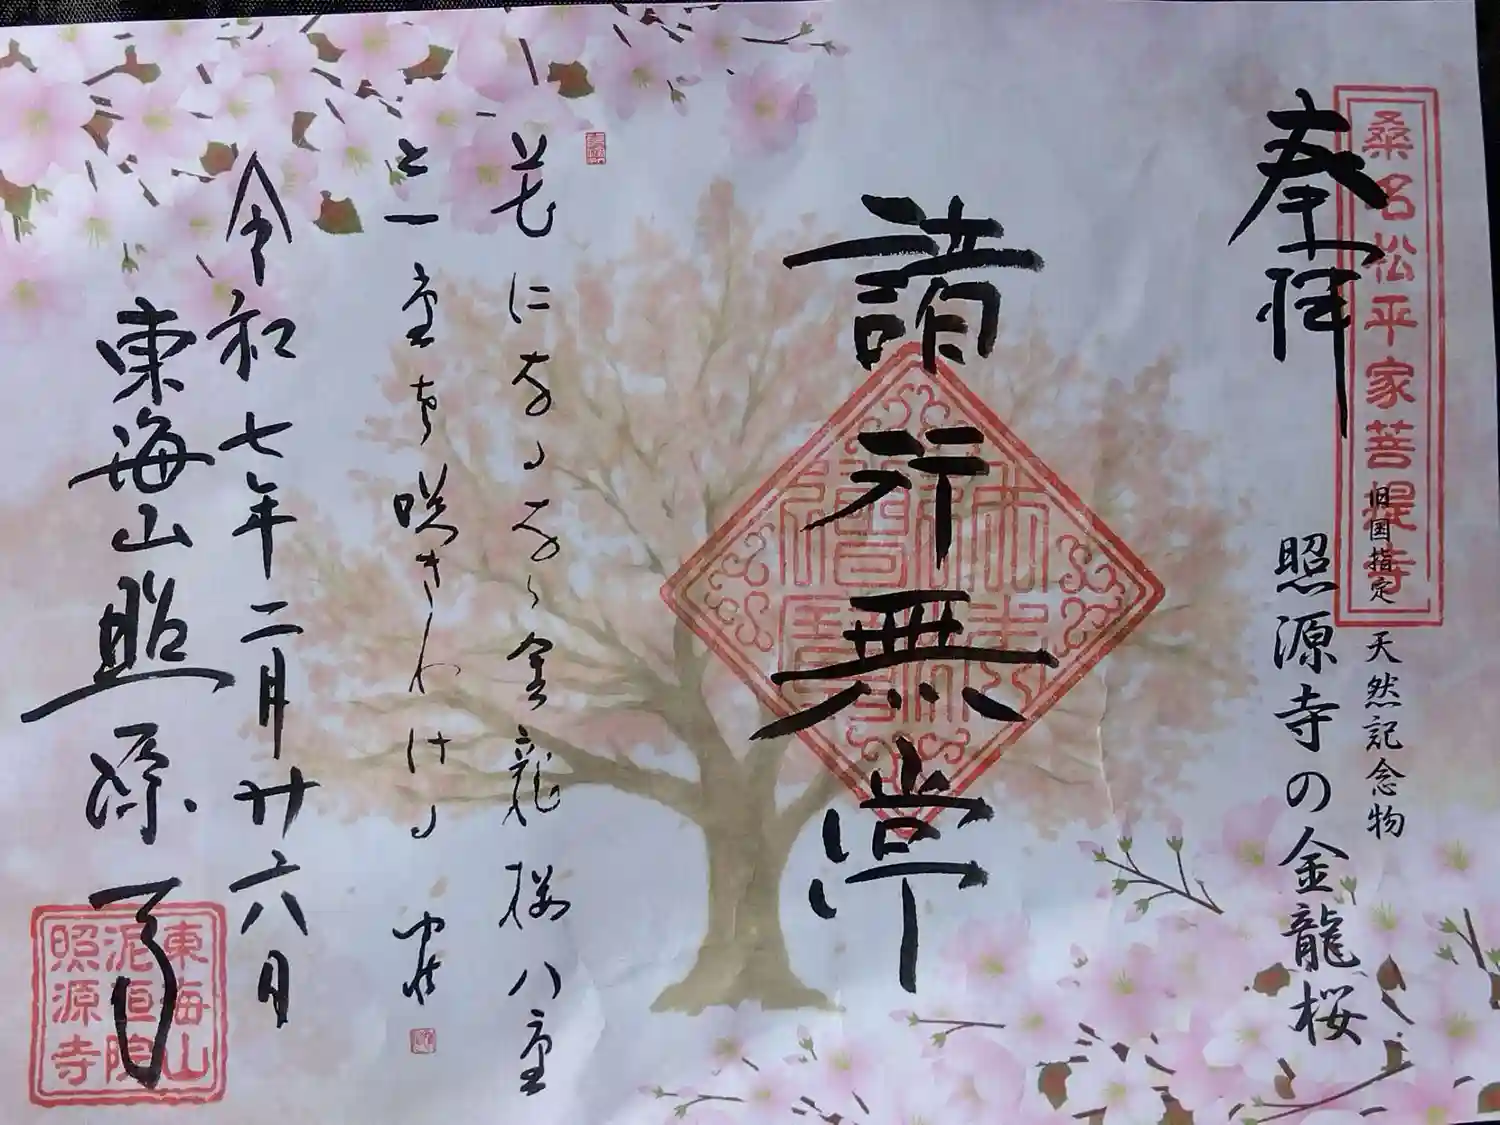 桑名松平家菩提寺
奉拝
旧国指定 天然記念物
照源寺の金龍桜
諸行無常
花になる
金龍桜八重
と一重を咲きわけ
令和七年二月廿六月
東海山照源寺
東海山
泥洹院
照源寺